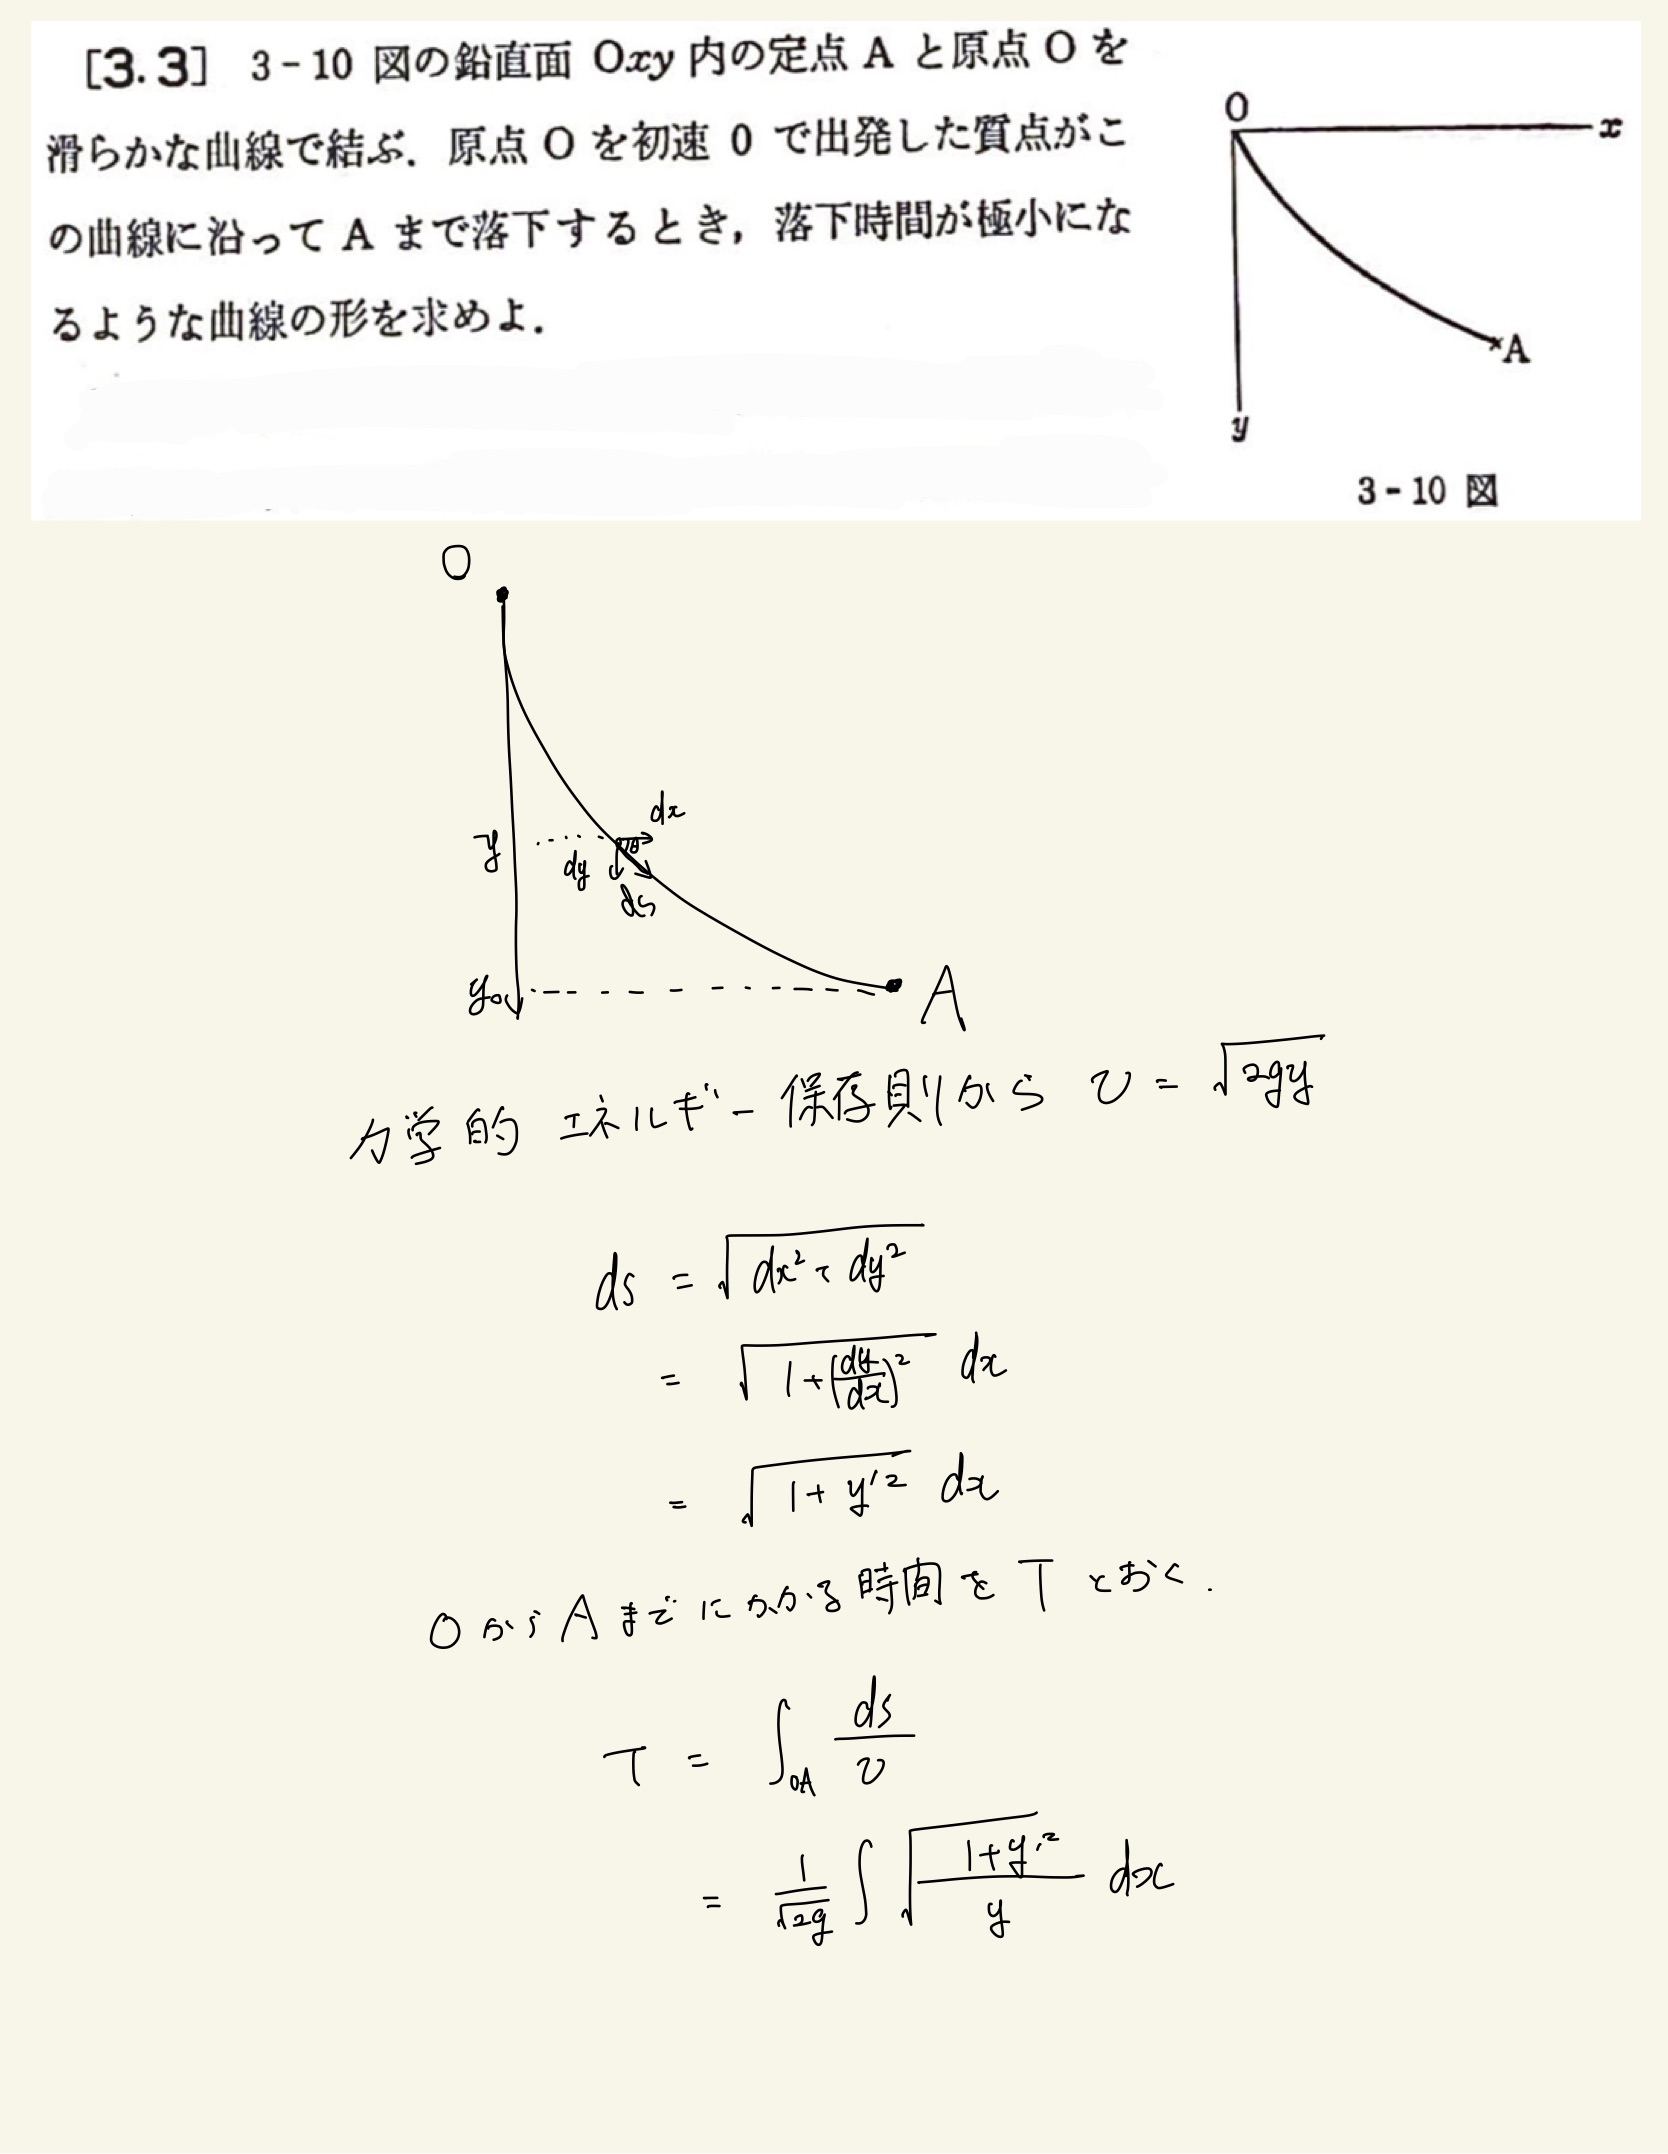 [3.3] 3-10 図の鉛直面 Oxy 内の定点 A と原点 O を
滑らかな曲線で結ぶ．原点 O を初速 0 で出発した質点がこ
の曲線に沿って A まで落下するとき，落下時間が極小にな
るような曲線の形を求めよ．
O
x
A
y
3-10 図
O
dx
y
θ
dy
ds
y₀
A
力学的 エネルギー保存則から v = √2gy
ds = √dx² + dy²
= √1+(dy/dx)² dx
= √1+y'² dx
OからAまでにかかる時間を T とおく.
T = ∫OA ds/v
= 1/√2g ∫ √(1+y'²)/y dx